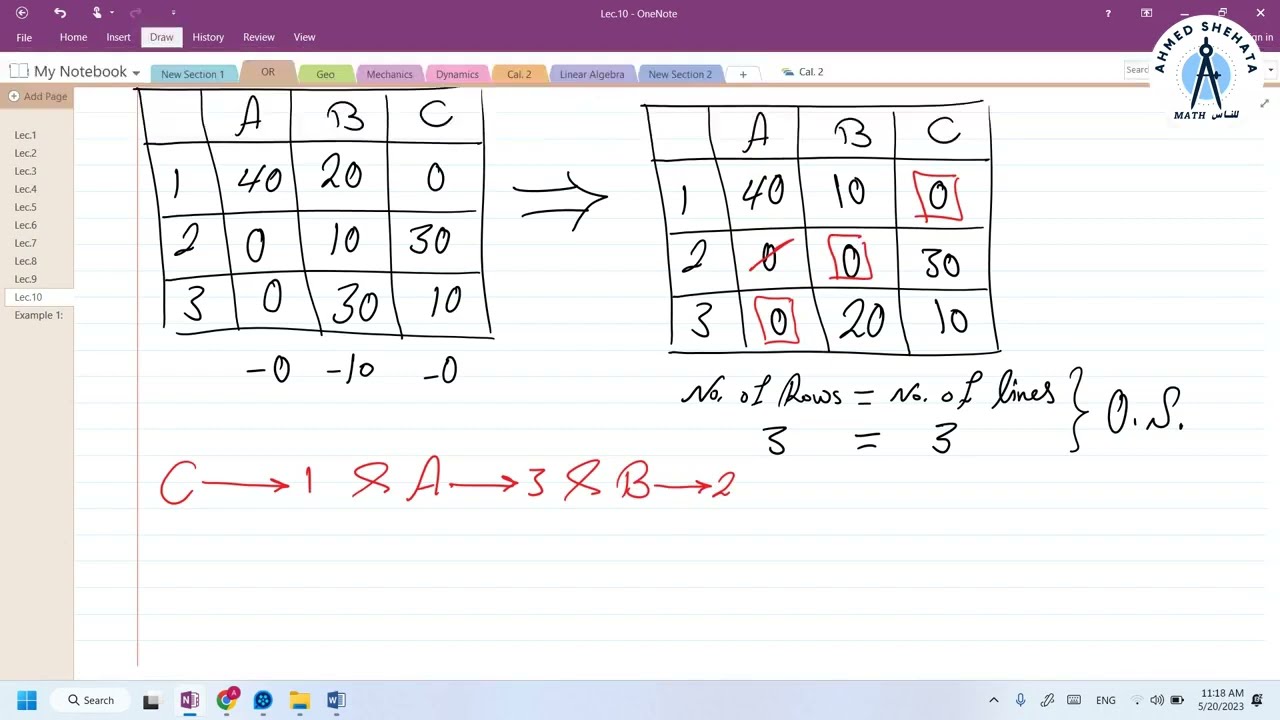 Lec.10 - OneNote
File Home Insert Draw History Review View
My Notebook New Section 1 OR Geo Mechanics Dynamics Cal. 2 Linear Algebra New Section 2 + Cal. 2
AHMED SHEHATA
MATH للناس
Add Page
Lec.1
Lec.2
Lec.3
Lec.4
Lec.5
Lec.6
Lec.7
Lec.8
Lec.9
Lec.10
Example 1:
A B C
1 40 20 0
2 0 10 30
3 0 30 10
-0 -10 -0
⇒
A B C
1 40 10 0
2 0 0 30
3 0 20 10
No. of Rows = No. of lines } O.S.
3 = 3
C → 1 & A → 3 & B → 2
Search
ENG
11:18 AM
5/20/2023